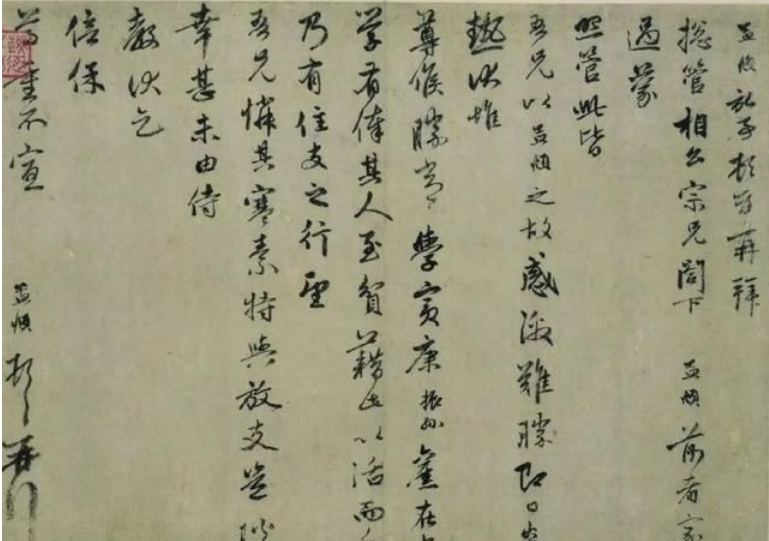 孟頫記事頓首再拜
總管相公宗兄閣下 孟頫前者家
過蒙
照管此皆
吾兄以孟頫之故感激難勝即日
熱伏惟
尊候勝常 學賓康振孫舊在
学有俸其人至貧藉此以活而
乃有住支之行望
吾兄憐其寒素特與放支豈
幸甚未由侍
教伏乞
倍保
尊重不宣
孟頫頓首再